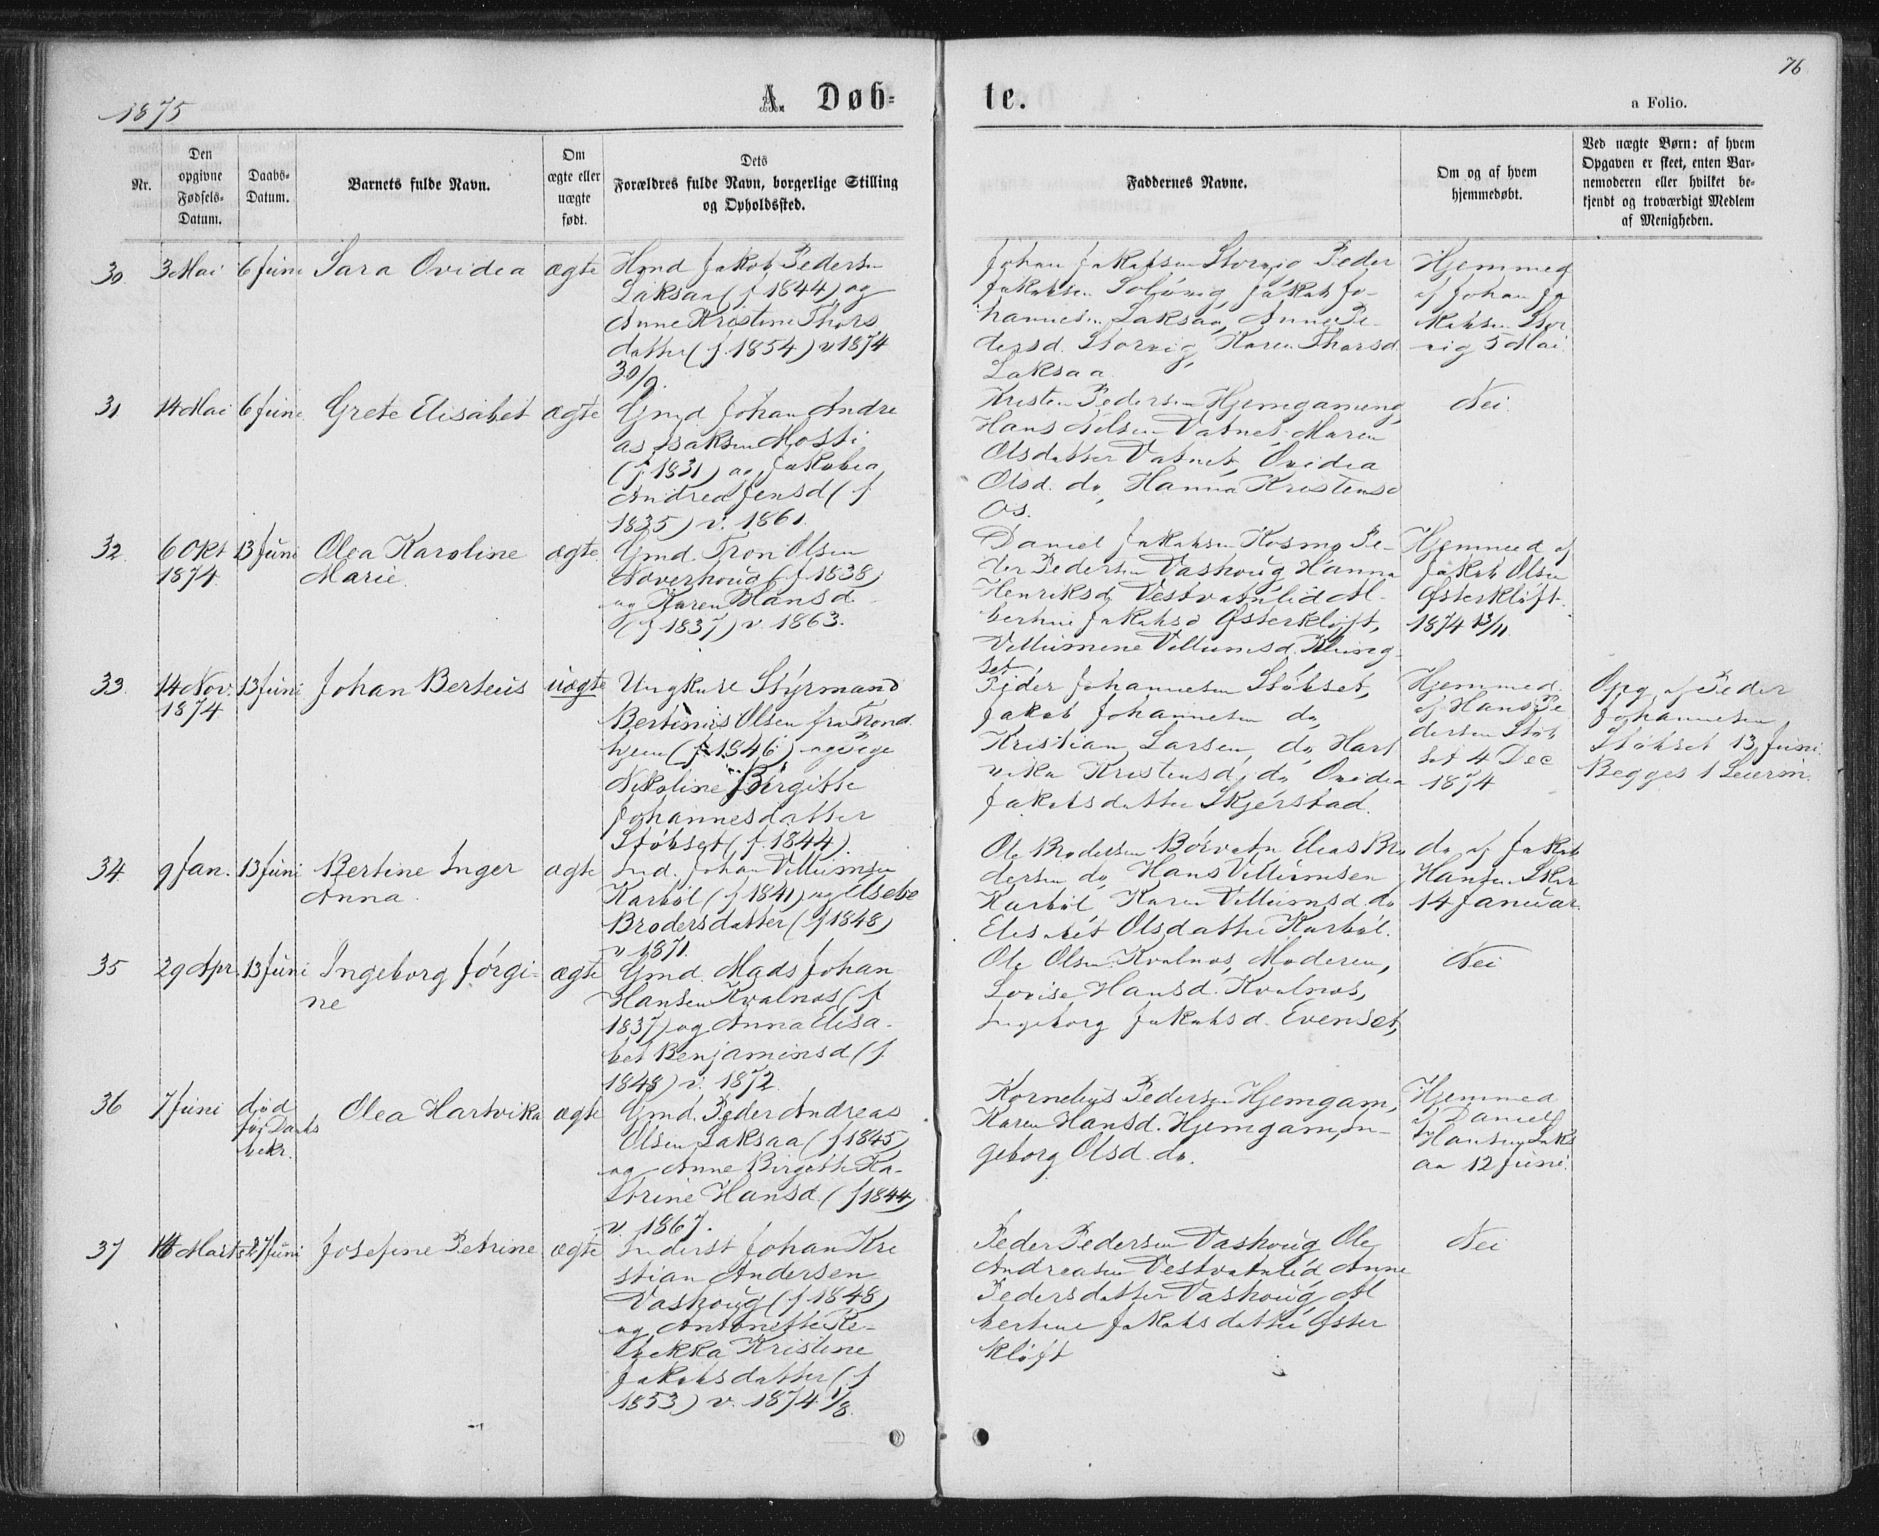 1875
A. Døb=
te.
76
a Folio.
Nr.
Den
opgivne
Fødsels-
Datum.
Daabs-
Datum.
Barnets fulde Navn.
Om
ægte eller
uægte
født.
Dets
Forældres fulde Navn, borgerlige Stilling
og Opholdssted.
Faddernes Navne.
Om og af hvem
hjemmedøbt.
Ved uægte Børn: af hvem
Opgaven er skeet, enten Bar-
nemoderen eller hvilket be-
kjendt og troværdigt Medlem
af Menigheden.
30 3 Mai 6 Juni Sara Ovidea ægte
Hmd Jakob Pedersen
Laksaa (f 1844) og
Anne Kristine Thors
datter (f 1854) v 1874
30/9.
Johan Jakobsen Storvig Peder
Jakobsen Solsvig, Jakob Jo-
hannesen Laksaa, Anne Pe-
dersd. Storvig, Karen Thorsd
Laksaa
Hjemmed
af Johan Ja
kobsen Stor
vig 5 Mai
31 14 Mai 6 Juni Grete Elisabet ægte
Gmd. Johan Andre
as Isaksen Mosti
(f 1831) og Jakobia
Andrea Jensd (f
1835) v. 1861.
Kristen Pedersen Hjemgameng,
Hans Nilsen Vatnet Maren
Olsdatter Vatnet, Ovidea
Olsd. do, Hanna Kristensd
Os.
Nei
32 6 Okt 13 Juni Olea Karoline ægte
1874 Marie
Gmd. Tron Olsen
Noverhoug (f 1838)
og Karen Hansd.
(f 1837) v. 1863.
Daniel Jakobsen Kosmo Pe-
der Pedersen Vashoug Hanna
Henriksd Vestvatnlid Al-
bertine Jakobsd Østerkløft,
Villumine Villumsd. Kling
set
Hjemmed af
Jakob Olsen
Østerkløft
1874 13/11
33. 14 Nov. 13 Juni Johan Berteus uægte
1874
Ungkarl Styrmand
Bertinus Olsen fra Trond
hjem (f 1846) og Pige
Nikoline Birgitte
Johannesdatter
Støkset (f. 1844).
Peder Johannesen Støkset,
Jakob Johannesen do,
Kristian Larsen, do Hart
vika Kristensd, do, Ovidea
Jakobsdatter Skjerstad
Hjemmed
af Hans Pe
dersen Støk
set 4 Dec
1874
Opg. af Peder
Johannesen
Støkset 13 Juni
Begges 1 Leierm.
34. 9 Jan. 13 Juni Bertine Inger ægte
Anna
Ind. Johan Villumsen
Karbøl (f 1841) og Elsebe
Brodersdatter (f 1848)
v 1871.
Ole Brodersen Børvatn Elias Bro
dersen do, Hans Villumsen
Karbøl, Karen Villumsd. do
Elisabet Olsdatter Karbøl.
do af Jakob
Hansen Skar
14 Januar.
35 29 Apr. 13 Juni Ingeborg Jørgi- ægte
ne
Gmd. Mads Johan
Hansen Kvalnos (f
1837) og Anna Elisa-
bet Benjaminsd (f.
1848) v. 1872
Ole Olsen Kvalnos, Moderen,
Lovise Hansd. Kvalnos,
Ingeborg Jakobsd. Evenset,
Nei
36 7 Juni død Olea Hartvika ægte
før Daabs
bekr.
Gmd. Peder Andreas
Olsen Laksaa (f 1845)
og Anne Birgitte Ka-
trine Hansd. (f 1844)
v. 1867.
Kornelius Pedersen Hjemgam,
Karen Hansd. Hjemgam, In-
geborg Olsd. do.
Hjemmed
af Daniel
Hansen Laks
aa 12 Juni.
37 Marts 27 Juni Josefine Petrine ægte
Inderst Johan Kri
stian Andersen
Vashoug (f 1848)
og Antonette Re-
bekka Kristine
Jakobsdatter (f
1853) v. 1874 1/8.
Peder Pedersen Vashoug Ole
Andreasen Vestvatnlid Anne
Pedersdatter Vashoug Al
bertine Jakobsdatter Øster
kløft
Nei